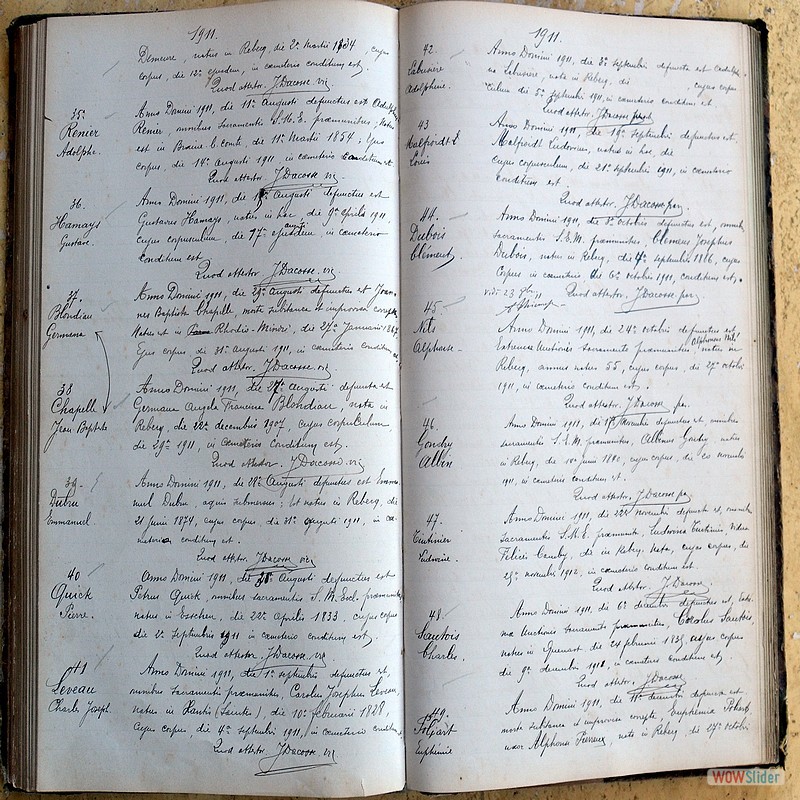 1911.
Demeure, natus in Rebecq, die 2ª Martii 1834, cujus
corpus, die 12ª ejusdem, in cœmeterio conditum est.
Quod attestor, J Dacosse vic
35º
Renier
Adolphe.
Anno Domini 1911, die 11ª Augusti defunctus est Adolphus
Renier, omnibus Sacramentis S.M.E. præmunitus; Natus
est in Braine le Comte, die 11ª Martii 1854; Ejus
corpus, die 14ª Augusti 1911, in cœmeterio conditum est
Quod attestor, J Dacosse vic
36
Hamays
Gustave.
Anno Domini 1911, die Augusti defunctus est
Gustavus Hamays, natus in hoc, die 9ª Aprilis 1911
cujus corpusculum, die 17ª augusti ejusdem, in cœmeterio
Conditum est
Quod attestor, J Dacosse, vic
37.
Blondiau
Germena
Anno Domini 1911, die 29ª Augusti defunctus est Joan-
nes Baptista Chapelle morte subitanea et improvisa correptus
Natus est in Rhodio-Minori, die 27ª Januarii
Ejus corpus die 31ª Augusti 1911, in cœmeterio conditum est
Quod attestor, J Dacosse vic.
38
Chapelle
Jean Baptiste
Anno Domini 1911, die 27ª Augusti defuncta est
Germana Angela Francisca Blondiau, nata in
Rebecq, die 22ª decembris 1907, cujus corpusculum,
die 29ª 1911, in Cœmeterio Conditum est.
Quod attestor, J Dacosse vic
39.
Dubru
Emmanuel.
Anno Domini 1911, die 28ª Augusti defunctus est Emma-
nuel Dubru, aquis submersus; Est natus in Rebecq, die
21 Junii 1874, cujus corpus, die 31ª Augusti 1911, in cœ-
meterio conditum est.
Quod attestor, J Dacosse vic
40
Quick
Pierre.
Anno Domini 1911, die Augusti defunctus est
Petrus Quick, omnibus sacramentis S. M. Eccl. præmunitus
natus in Esschen, die 22ª Aprilis 1833, cujus corpus
die 2ª Septembris 1911 in cœmeterio conditum est,
Quod attestor, J Dacosse, vic
41
Leveau
Charles Joseph.
Anno Domini 1911, die 1ª septembris defunctus est,
omnibus Sacramentis præmunitus, Carolus Josephus Leveau,
natus in Xantis (Saintes), die 10ª februarii 1828,
cujus corpus, die 4ª septembris 1911, in cœmeterio conditum
Quod attestor, J Dacosse. vic
1911.
42.
Labusière
Adolphine.
Anno Domini 1911, die 3ª septembris defuncta est Adolphi-
na Labusière, nata in Rebecq, die cujus corpus-
culum die 5ª septembris 1911, in cœmeterio conditum est
Quod attestor, J Dacosse
43
Malfroidt
Louis
Anno Domini 1911, die 19ª Septembris defunctus est,
Malfroidt Ludovicus, natus in hoc, die
cujus corpusculum, die 21ª septembris 1911, in cœmeterio
conditum est
Quod attestor, J Dacosse per.
44.
Dubois
Clément.
Anno Domini 1911, die 3ª Octobris defunctus est, omnib.
sacramentis S.E.M. præmunitus, Clemens Josephus
Dubois, natus in Rebecq, die 4ª septembris 1866, cujus
Corpus in cœmeterio die 6ª octobris 1911, conditum est,
vidi 23 9bris 11
Quod attestor, J Dacosse per.
45
Nils
Alphonse
Anno Domini 1911, die 24ª octobris defunctus est,
Extremæ Unctionis Sacramento præmunitus, Alphonsus Nils natus in
Rebecq, annos natus 55, cujus corpus, die 27ª octobris
1911, in cœmeterio conditum est.
Quod attestor, J Dacosse per.
46
Gondry
Albin
Anno Domini 1911, die Novembris defunctus est, omnibus
sacramentis S.E.M. præmunitus, Albinus Gondry, natus
in Rebecq, die 10ª junii 1840, cujus corpus, die 20 novembris
1911, in cœmeterio conditum est.
Quod attestor, J Dacosse per
47.
Ludovica.
Anno Domini 1911, die 22ª novembris defuncta est, omnib.
Sacramentis S.M.E. præmunita, Ludovica vidua
Felicis die in Rebecq nata, cujus corpus, die
25ª novembris 1912, in cœmeterio conditum est.
Quod attestor, J Dacosse
48
Sautois
Charles.
Anno Domini 1911, die 6ª decembris defunctus est, Extre-
mæ Unctionis Sacramento præmunitus, Carolus Sautois,
natus in Quenast die 24 februarii cujus corpus
die 9ª decembris 1911, in cœmeterio conditum est
Quod attestor, J Dacosse
49.
Euphémie
Anno Domini 1911, die 11ª decembris defuncta est,
morte subitanea et improvisa correpta, Euphemia
uxor Alphonsi Pierreux, nata in Rebecq, die 27ª octobris
WOWSlider